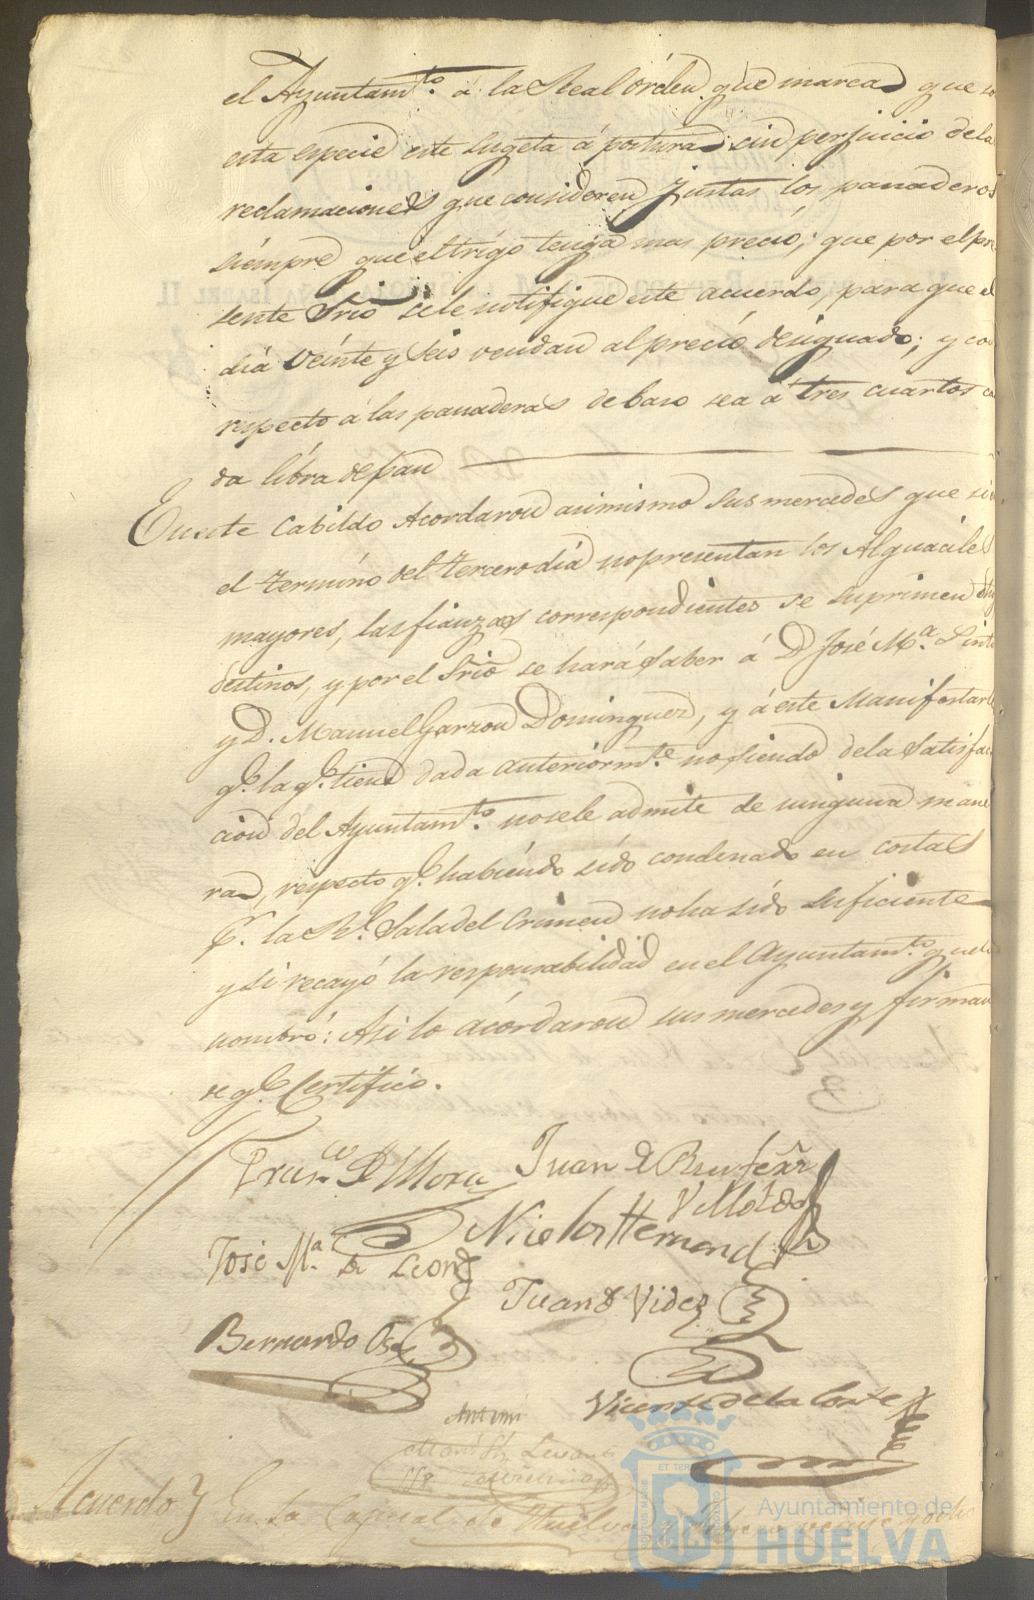 el Ayuntamto. á la Real órden que marca que
esta especie este sugeta á postura sin perjuicio de la
reclamaciones que consideren justas los panaderos
siempre que el trigo tenga mas precio; que por el pre
sente Srio se le notifique este acuerdo, para que el
dia veinte y seis vendan al precio designado; y con
respecto á las panaderas de baso sea á tres cuartos ca
da libra de pan
En este Cabildo Acordaron asimismo sus mercedes que si
el termino del tercero dia no presentan los Alguaciles
mayores, las fianzas correspondientes se suprimen
destinos, y por el Srio se hará saber á D José Ma. Pinto
y D. Manuel Garzon Dominguez, y á este Manifestarle
qe. la qe. tiene dada anteriormte. no siendo de la satisfac
cion del Ayuntamto. no se le admite de ninguna mane
ra, respecto qe. habiendo sido condenado en costas
pr. la Rl. Sala del Crimen no ha sido suficiente
y si recayó la responsabilidad en el Ayuntamto. que le
nombró: Asi lo acordaron sus mercedes y firman
de qe. Certifico.
Franco. D Mora Juan d
Nicolas Hernand
José Ma. de Leon
Juan d Videz
Bernardo
Vicente de la Corte
Acuerdo } En la Capital de Huelva
Ayuntamiento de
HUELVA